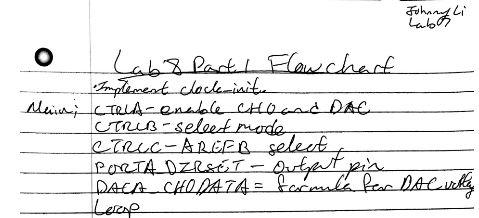 Johnny Li
Lab 07
Lab 8 Part 1 Flowchart
·Implement clock-init.
Main; CTRLA - enable CH0 and DAC
CTRLB - select mode
CTRLC - AREFB select
PORTA_DIRSET - output pin
DACA_CH0DATA = formula for DAC
Loop